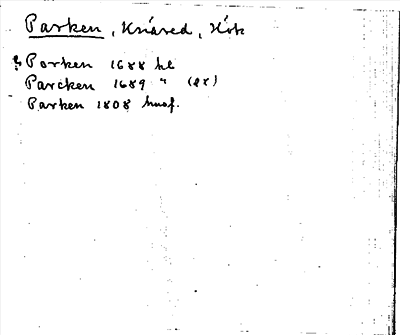 Parken, Knäred, Hök
? Porken 1688 kl
Parcken 1689 " (ex)
Parken 1808 husf.